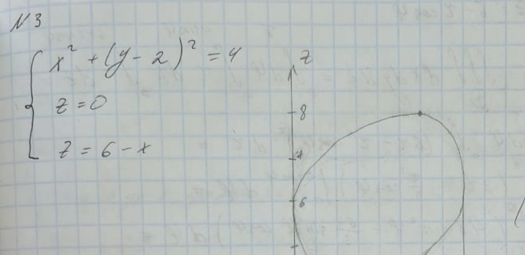 N 3
x² + (y - 2)² = 4
z = 0
z = 6 - x
z
8
6